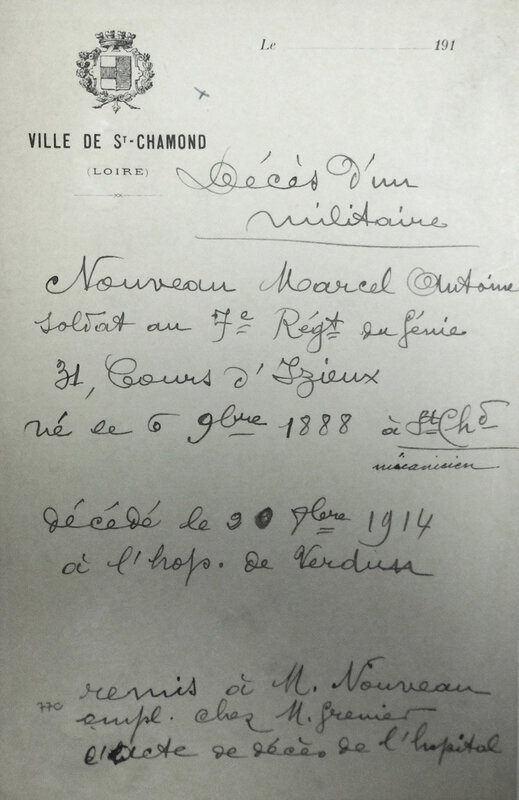 Le 191
VILLE DE ST-CHAMOND
(LOIRE)
Décès d'un
militaire
Nouveau Marcel Antoine
soldat au 7e Régt du Génie
31, Cours d'Izieux
né le 6 9bre 1888 à St Chd
mécanicien
décédé le 20 7bre 1914
à l'hop. de Verdun
remis à M. Nouveau
770
empl. chez M. Grenier
l'acte de décès de l'hopital